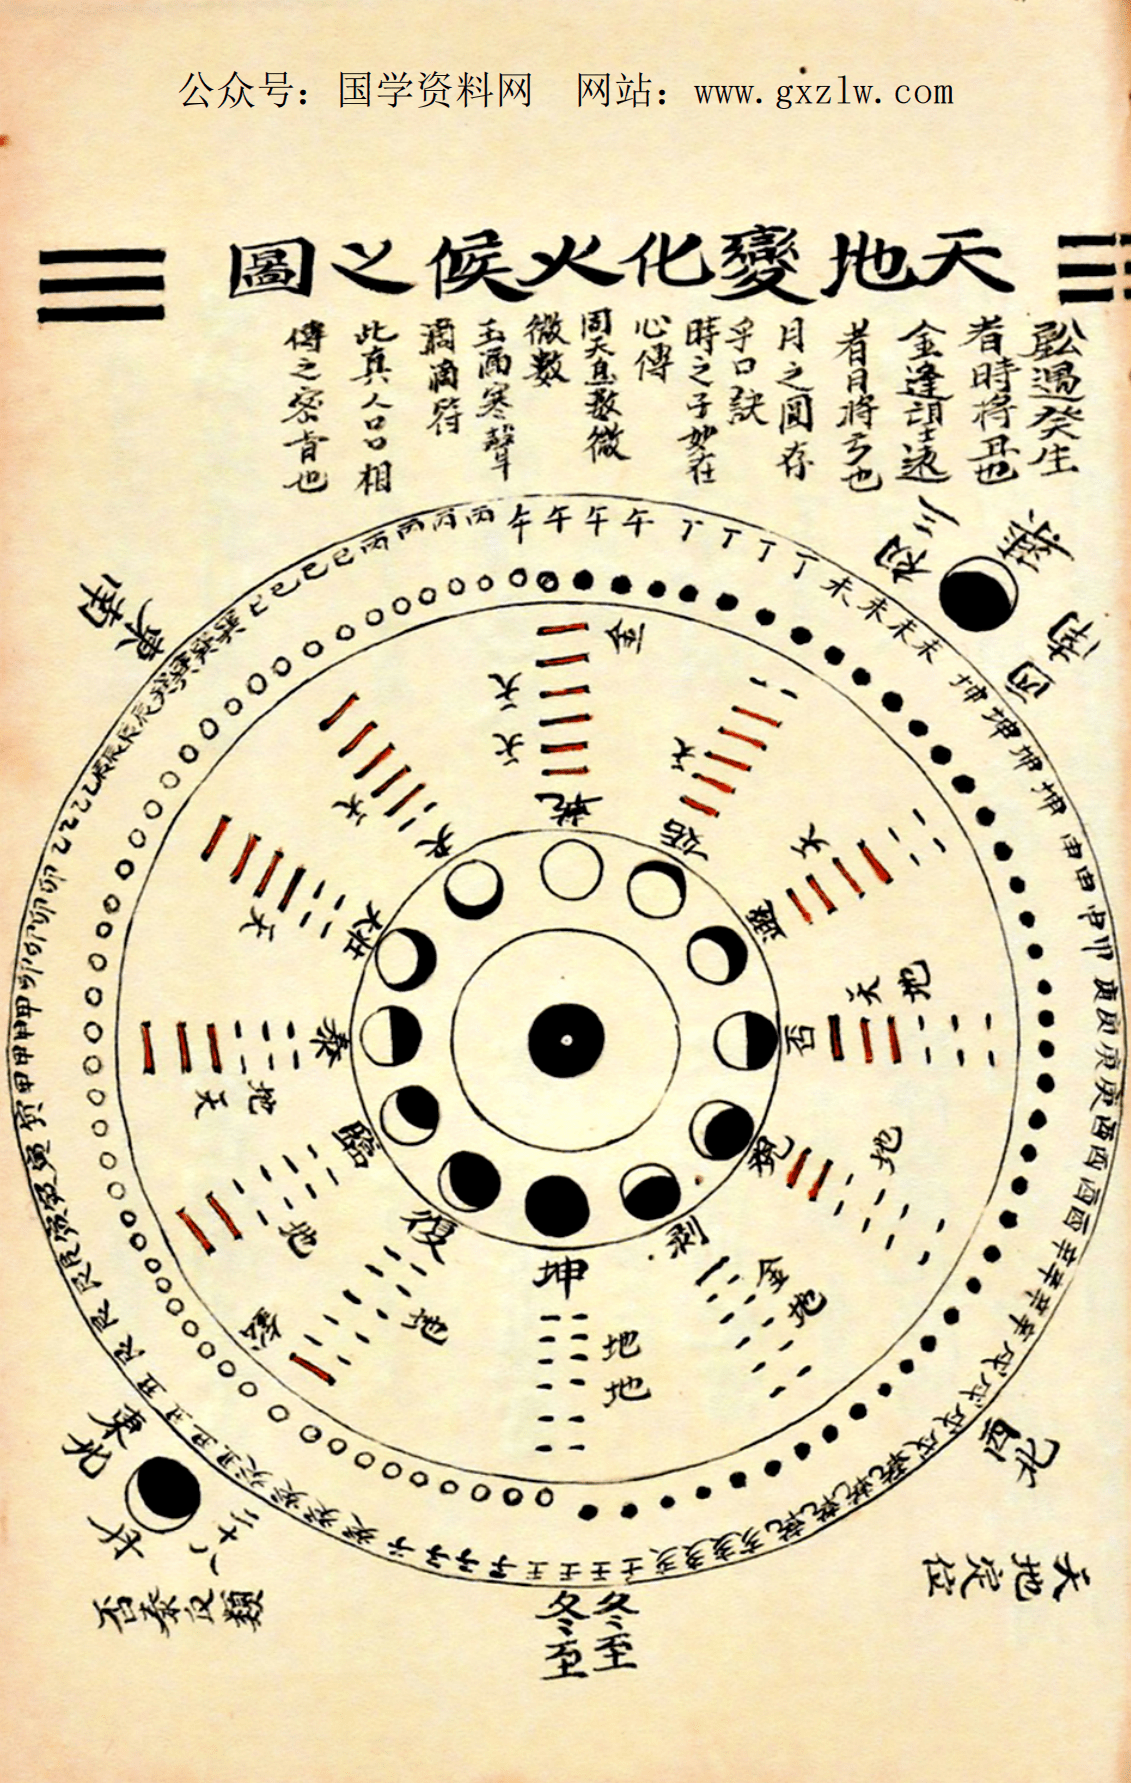 公众号：国学资料网　网站：www.gxzlw.com
天地變化火候之圖
鉛遇癸生
者時將丑也
金逢望遠
者日將亏也
月之圓存
乎口訣
時之子妙在
心傳
周天息数微
微数
玉漏寒聲
滴滴符
此真人口口相
傳之密旨也
丙丙丙丙午午午午丁丁丁丁未未未未坤坤坤坤申申申申庚庚庚庚酉酉酉酉辛辛辛辛戌戌戌戌乾乾乾乾亥亥亥亥壬壬壬壬子子子子癸癸癸癸丑丑丑丑艮艮艮艮寅寅寅寅甲甲甲甲卯卯卯卯乙乙乙乙辰辰辰辰巽巽巽巽巳巳巳巳
初三
西南
東南
西北
東北
二十八
乾
天
天
金
姤
天
遯
天
否
天
地
观
地
剥
金
地
坤
地
地
復
地
鉛
臨
地
泰
地
天
大壯
天
夬
天
天地定位
否泰反類
冬至
冬至